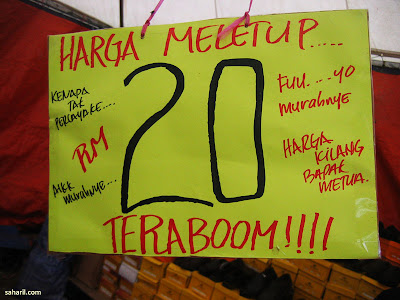 HARGA MELETUP.....
KENAPA
TAK
PERCAYA KE....
RM
20
FUU....YO
murahnye
HARGA
KILANG
BAPAK
METUA.
murahnye...
TERABOOM!!!!
saharil.com